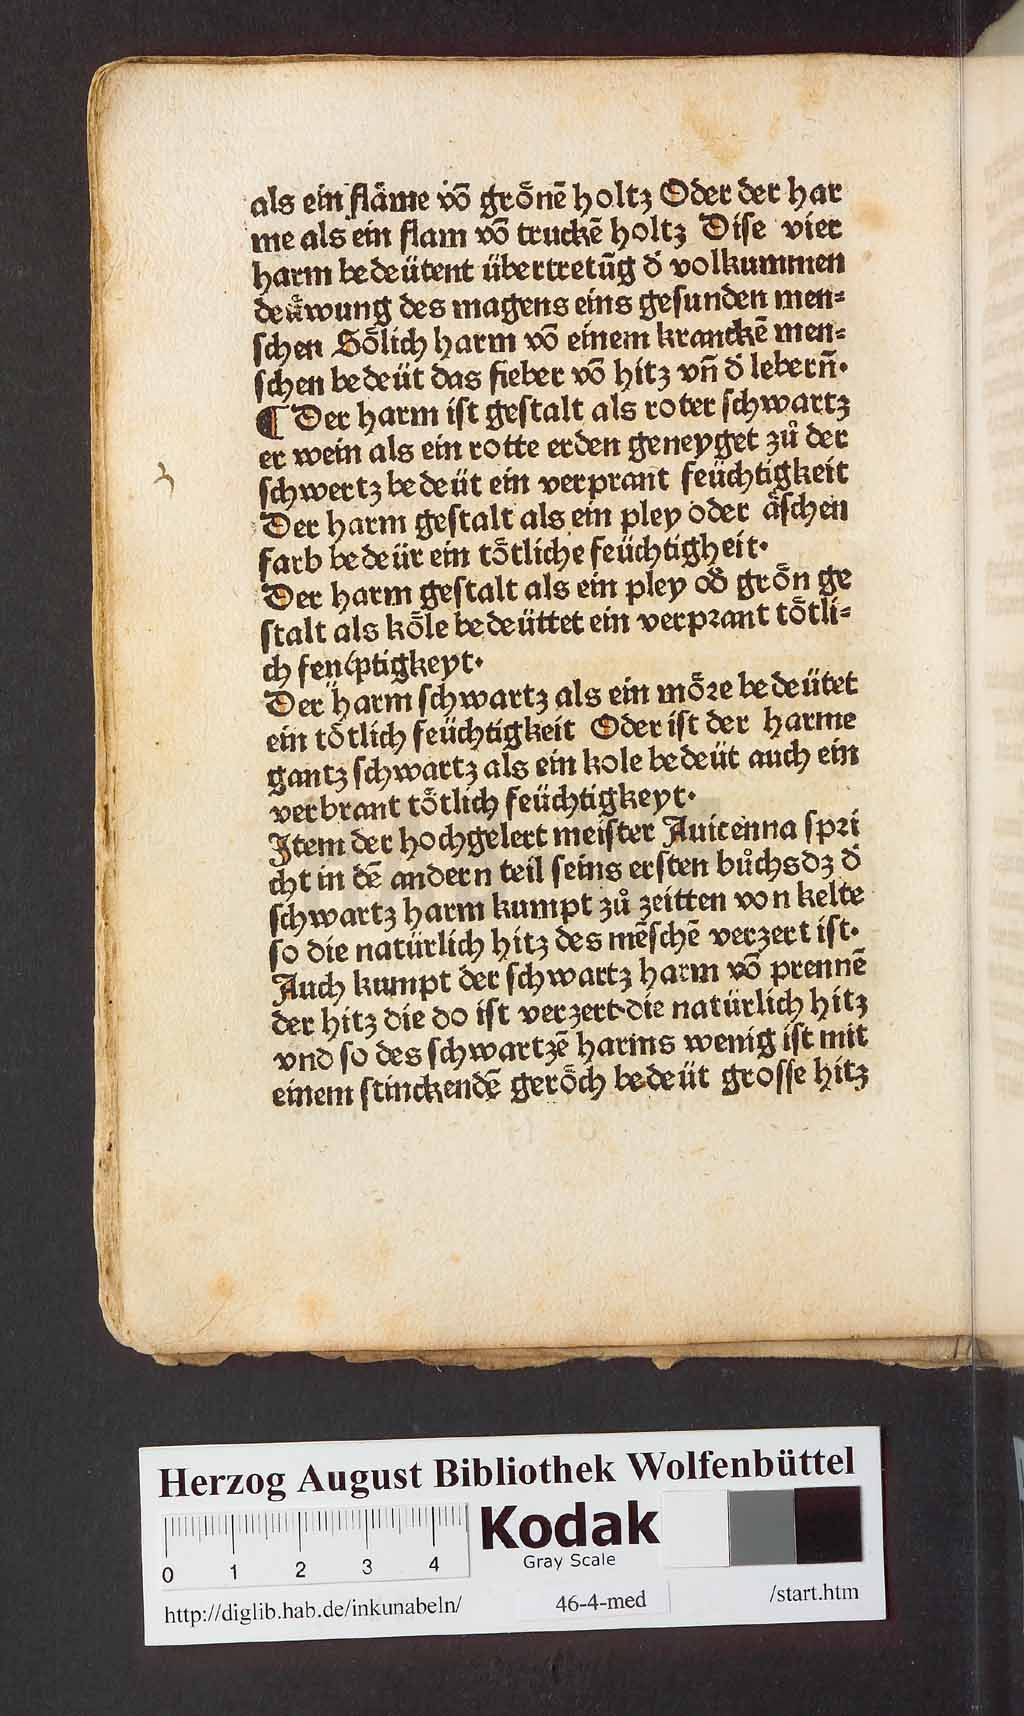 als ein flāme vō grȫnē holtz Oder der har
me als ein flam vō truckē holtz Dise vier
harm bedeütent übertretūg d̄ volkummen
deüͤwung des magens eins gesunden men⸗
schen Söͤlich harm vō einem kranckē men⸗
schen bedeüt das fieber vō hitz vn̄ d̄ lebern̄.
¶ Der harm ist gestalt als roter schwartz
er wein als ein rotte erden geneyget zuͦ der
schwertz bedeüt ein verprant feüchtigkeit
Der harm gestalt als ein pley oder aͤschen
farb bedeür ein toͤtliche feüchtigheit.
Der harm gestalt als ein pley od̄ groͤn ge
stalt als koͤle bedeüttet ein verpꝛant toͤtli⸗
ch feüchtigkeyt.
Der harm schwartz als ein moͤꝛe bedeütet
ein toͤtlich feüchtigkeit Oder ist der harme
gantz schwartz als ein kole bedeüt auch ein
verbrant toͤtlich feüchtigkeyt.
Item der hochgelert meister Auicenna spꝛi
cht in dē andern teil seins ersten buͦchs dz d̄
schwartz harm kumpt zuͦ zeitten von kelte
so die natürlich hitz des mēschē verzert ist.
Auch kumpt der schwartz harm vō prennē
der hitz die do ist verzert die natürlich hitz
vnd so des schwartzē harms wenig ist mit
einem stinckendē geroͤch bedeüt grosse hitz
Herzog August Bibliothek Wolfenbüttel
Kodak
Gray Scale
0 1 2 3 4
http://diglib.hab.de/inkunabeln/ 46-4-med /start.htm